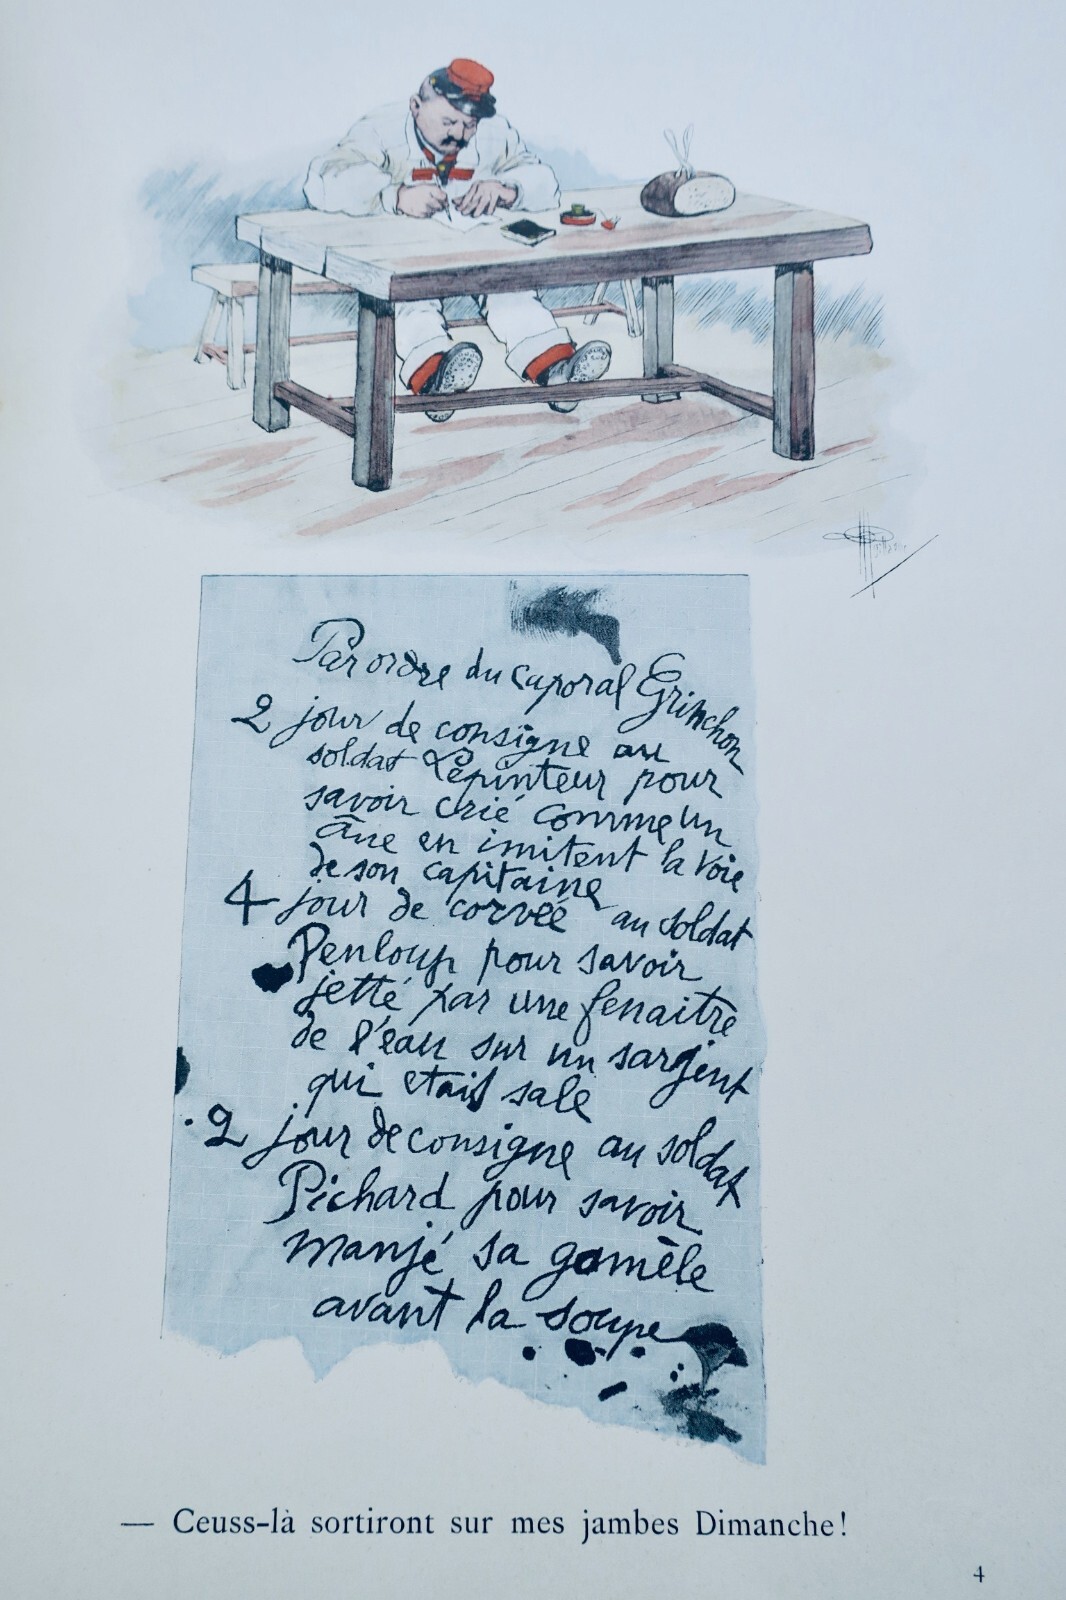 Par ordre du caporal Grinchon
2 jour de consigne au
soldat Lepinteur pour
savoir crié comme un
âne en imitent la voie
de son capitaine
4 jour de corvée au soldat
Penloup pour savoir
jetté par une fenaitre
de l'eau sur un sargent
qui etais sale
2 jour de consigne au soldat
Pichard pour savoir
manjé sa gamèle
avant la soupe
— Ceuss-là sortiront sur mes jambes Dimanche!
4